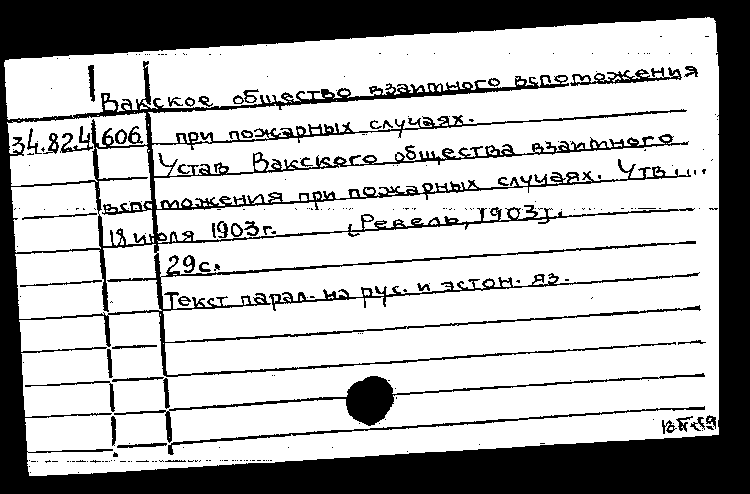 Вакское общество взаимного вспоможения
34.82.4.606. при пожарных случаях.
Устав Вакского общества взаимного
вспоможения при пожарных случаях. Утв....
18 июля 1903г. [Ревель, 1903].
29с.
Текст парал. на рус. и эстон. яз.